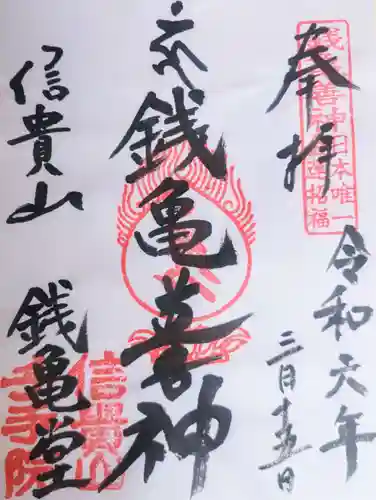 奉拝
銭亀善神日本唯一
招福
令和六年
三月十五日
銭亀善神
信貴山
銭亀堂
信貴山
千手院